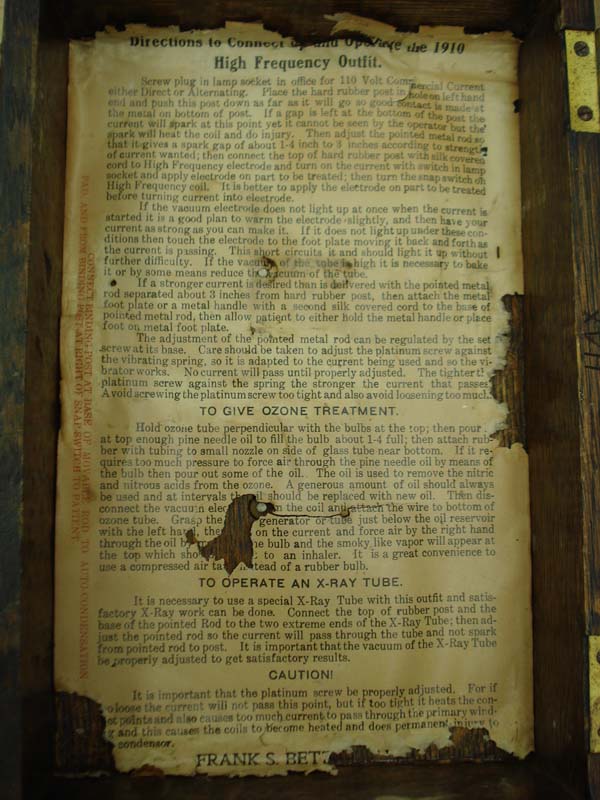 Directions to Connect up and Operate the 1910
High Frequency Outfit.
Screw plug in lamp socket in office for 110 Volt Commercial Current
either Direct or Alternating. Place the hard rubber post in hole on left hand
end and push this post down as far as it will go so good contact is made at
the metal on bottom of post. If a gap is left at the bottom of the post the
current will spark at this point yet it cannot be seen by the operator but the
spark will heat the coil and do injury. Then adjust the pointed metal rod so
that it gives a spark gap of about 1-4 inch to 3 inches according to strength
of current wanted; then connect the top of hard rubber post with silk covered
cord to High Frequency electrode and turn on the current with switch in lamp
socket and apply electrode on part to be treated; then turn the snap switch on
High Frequency coil. It is better to apply the electrode on part to be treated
before turning current into electrode.
If the vacuum electrode does not light up at once when the current is
started it is a good plan to warm the electrode slightly, and then have your
current as strong as you can make it. If it does not light up under these con-
ditions then touch the electrode to the foot plate moving it back and forth as
the current is passing. This short circuits it and should light it up without
further difficulty. If the vacuum of the tube is high it is necessary to bake
it or by some means reduce the vacuum of the tube.
If a stronger current is desired than is delivered with the pointed metal
rod separated about 3 inches from hard rubber post, then attach the metal
foot plate or a metal handle with a second silk covered cord to the base of
pointed metal rod, then allow patient to either hold the metal handle or place
foot on metal foot plate.
The adjustment of the pointed metal rod can be regulated by the set
screw at its base. Care should be taken to adjust the platinum screw against
the vibrating spring, so it is adapted to the current being used and so the vi-
brator works. No current will pass until properly adjusted. The tighter th
platinum screw against the spring the stronger the current that passes
Avoid screwing the platinum screw too tight and also avoid loosening too much.
TO GIVE OZONE TREATMENT.
Hold ozone tube perpendicular with the bulbs at the top; then pour
at top enough pine needle oil to fill the bulb about 1-4 full; then attach rub-
ber with tubing to small nozzle on side of glass tube near bottom. If it re-
quires too much pressure to force air through the pine needle oil by means of
the bulb then pour out some of the oil. The oil is used to remove the nitric
and nitrous acids from the ozone. A generous amount of oil should always
be used and at intervals the oil should be replaced with new oil. Then dis-
connect the vacuum elec the coil and attach the wire to bottom of
ozone tube. Grasp the generator or tube just below the oil reservoir
with the left hand, the on the current and force air by the right hand
through the oil by me bulb and the smoky like vapor will appear at
the top which sho to an inhaler. It is a great convenience to
use a compressed air ta instead of a rubber bulb.
TO OPERATE AN X-RAY TUBE.
It is necessary to use a special X-Ray Tube with this outfit and satis-
factory X-Ray work can be done. Connect the top of rubber post and the
base of the pointed Rod to the two extreme ends of the X-Ray Tube; then ad-
just the pointed rod so the current will pass through the tube and not spark
from pointed rod to post. It is important that the vacuum of the X-Ray Tube
be properly adjusted to get satisfactory results.
CAUTION!
It is important that the platinum screw be properly adjusted. For if
o loose the current will not pass this point, but if too tight it heats the con-
ct points and also causes too much current to pass through the primary wind-
g and this causes the coils to become heated and does permanent injury to
condensor.
FRANK S. BET
CONNECT BINDING POST AT BASE OF MOVABLE ROD TO AUTO-CONDENSATION
PAD AND BINDING POST AT RIGHT OF SNAP-SWITCH TO PATIENT